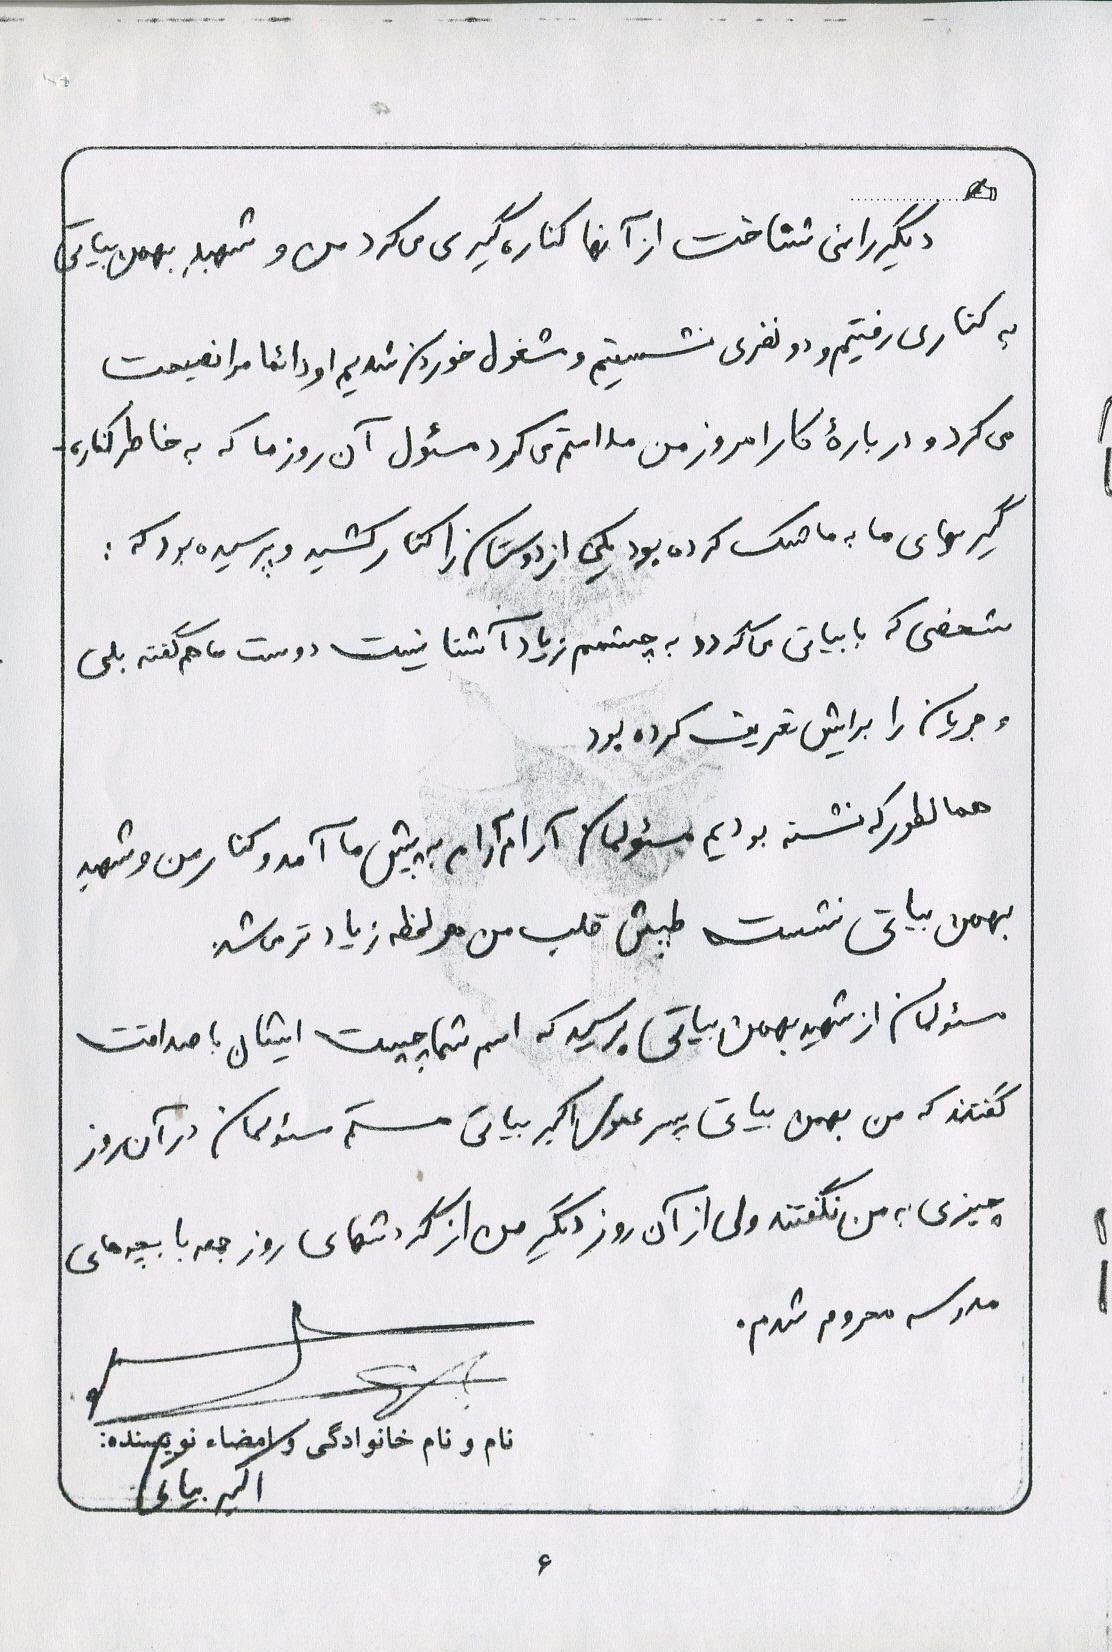 دیگر را نمی شناخت از آنها کناره گیری می کرد من و شهید بهمن بیاتی
به کناری رفتیم و دو نفری نشستیم و مشغول خوردن شدیم او دائما مرا نصیحت
می کرد و درباره کار امروز من ملامتم می کرد مسئول آن روز ما که به خاطر کناره
گیریهای ما به ما شک کرده بود یکی از دوستان را کنار کشید و پرسیده بود که :
شخصی که با بیاتی می گردد به چشمم زیاد آشنا نیست دوست ما هم گفته بلی
و جریان را برایش تعریف کرده بود
همانطور که نشسته بودیم مسئولمان آرام آرام به پیش ما آمد و کنار من و شهید
بهمن بیاتی نشست طپش قلب من هر لحظه زیادتر می شد.
مسئولمان از شهید بهمن بیاتی پرسید که اسم شما چیست ایشان با صداقت
گفتند که من بهمن بیاتی پسر عموی اکبر بیاتی هستم مسئولمان در آن روز
چیزی به من نگفتند ولی از آن روز دیگر من از گردشهای روز جمعه با بچه های
مدرسه محروم شدم.
نام و نام خانوادگی و امضاء نویسنده:
اکبر بیاتی
۶